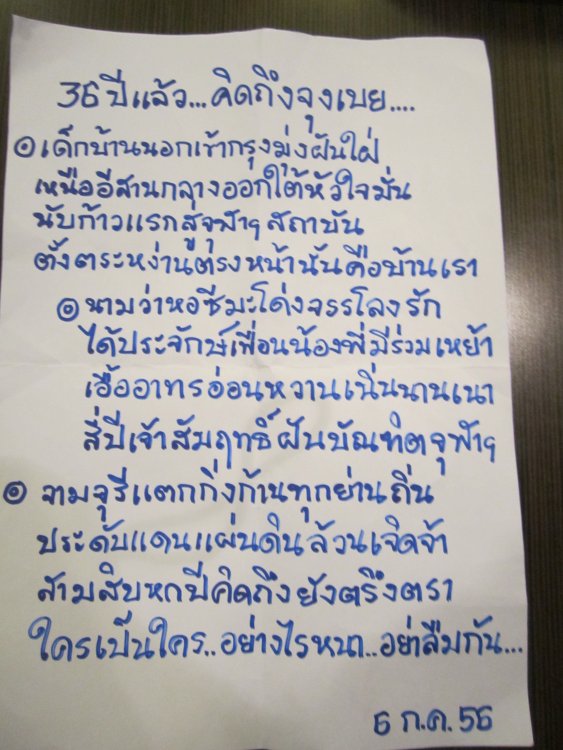 36 ปีแล้ว...คิดถึงจุงเบย....
๏ เด็กบ้านนอกเข้ากรุงมุ่งฝันใฝ่
เหนืออีสานกลางออกใต้หัวใจมั่น
นับก้าวแรกสู่จุฬาฯ สถาบัน
ตั้งตระหง่านตรงหน้านั้นคือบ้านเรา
๏ นามว่าหอซีมะโด่งจรรโลงรัก
ได้ประจักษ์เพื่อนน้องพี่มีร่วมเหย้า
เอื้ออาทรอ่อนหวานเนิ่นนานเนา
สี่ปีเจ้าสัมฤทธิ์ฝันบัณฑิตจุฬาฯ
๏ จามจุรีแตกกิ่งก้านทุกย่านถิ่น
ประดับแดนแผ่นดินล้วนเจิดจ้า
สามสิบหกปีคิดถึงยังตรึงตรา
ใครเป็นใคร..อย่างไรหนา..อย่าลืมกัน...
6 ก.ค. 56